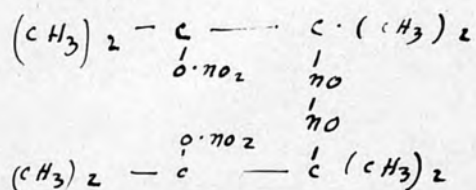 (CH3)2 — C — C · (CH3)2
O·NO2 NO
NO
O·NO2
(CH3)2 — C — C (CH3)2